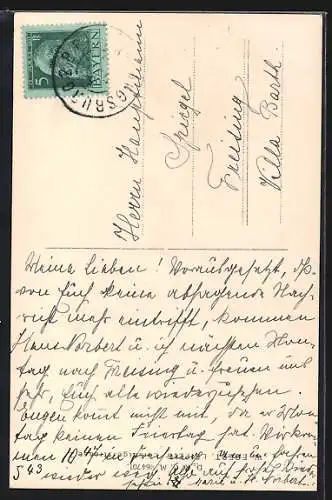 5
BAYERN
Herrn Hauptlehrer
Spiegel
Freising
Villa Barth.
Meine Lieben! Vorausgesetzt, daß
von Euch keine absagende Nach-
richt mehr eintrifft, kommen
Hans Norbert u. ich nächsten Mon-
tag nach Freising u. freuen uns
sehr, Euch alle wiederzusehen.
Eugen kommt nicht mit, da er Mon-
tag keinen Feiertag hat. Wir kom-
men 10
5 43 wieder